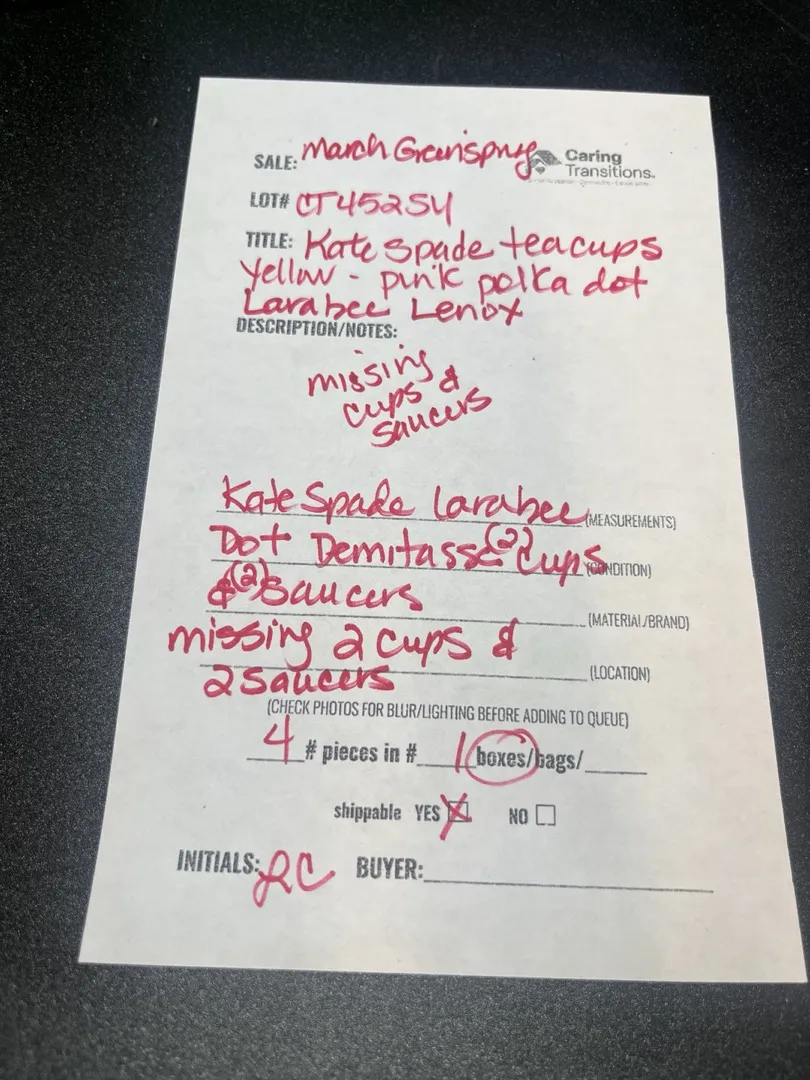 SALE: March Greenspring Caring
Transitions.
LOT# CT45254
TITLE: Kate Spade teacups
Yellow - pink polka dot
Larabee Lenox
DESCRIPTION/NOTES:
missing
cups &
saucers
Kate Spade larabee (MEASUREMENTS)
Dot Demitasse (2) cups (CONDITION)
& (2) saucers
(MATERIAL/BRAND)
missing 2 cups &
2 saucers (LOCATION)
(CHECK PHOTOS FOR BLUR/LIGHTING BEFORE ADDING TO QUEUE)
4 # pieces in # 1 boxes/bags/
shippable YES NO
INITIALS: RC BUYER: